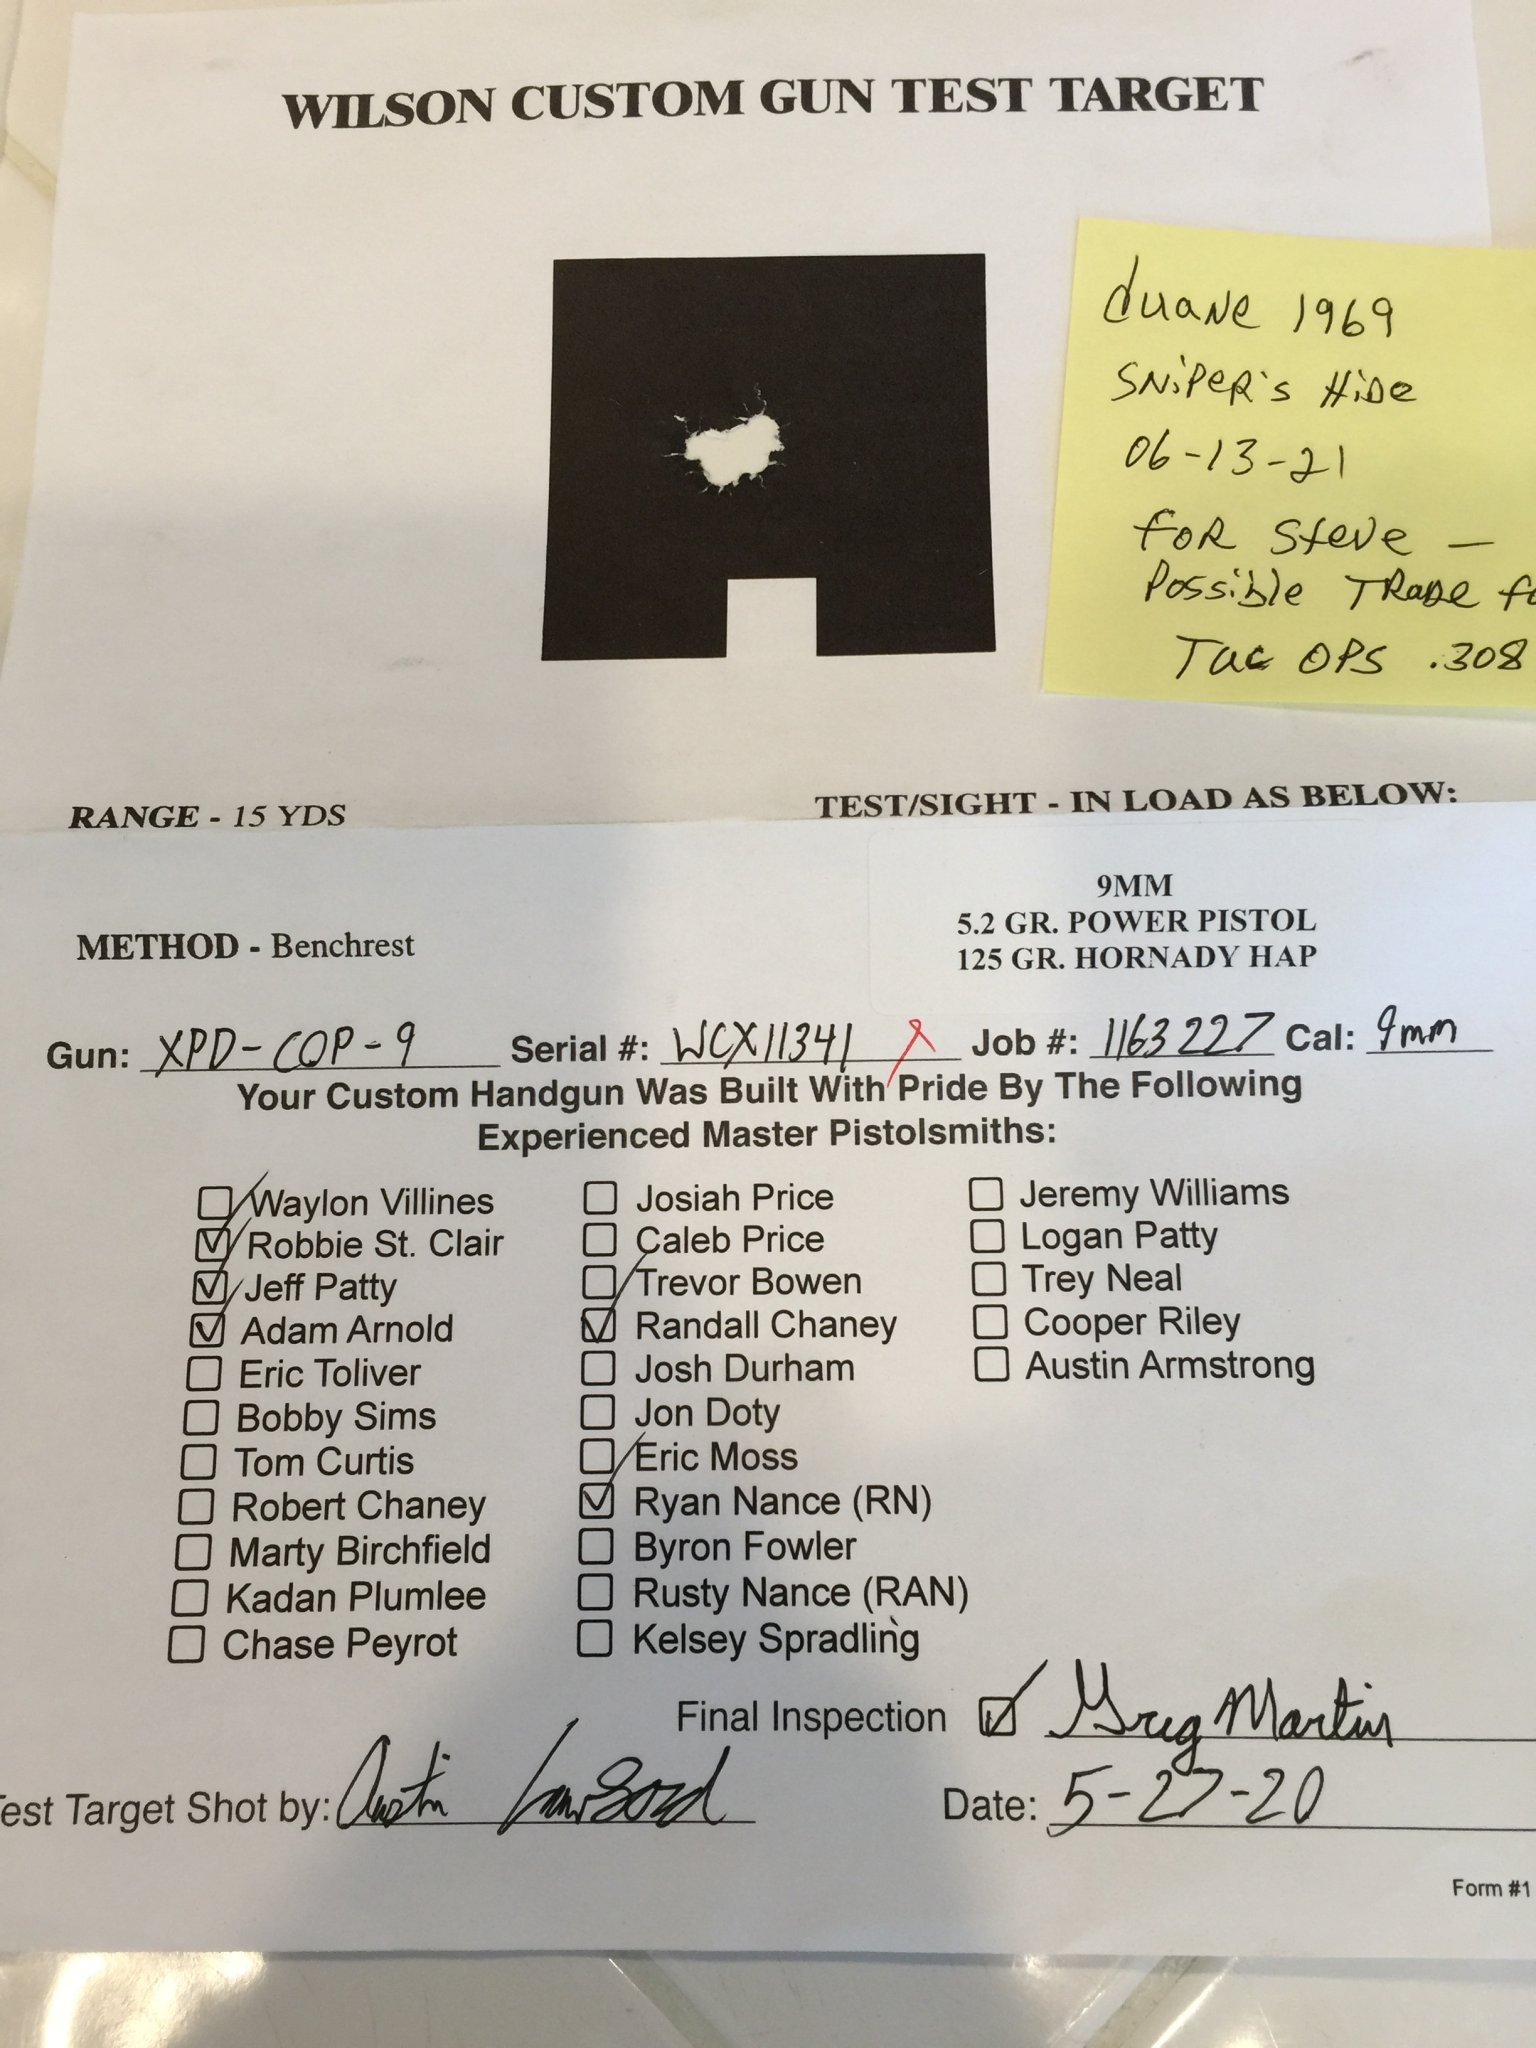 WILSON CUSTOM GUN TEST TARGET
duane 1969
Sniper's Hide
06-13-21
for Steve —
Possible Trade fo
Tac OPS .308
RANGE - 15 YDS
TEST/SIGHT - IN LOAD AS BELOW:
9MM
5.2 GR. POWER PISTOL
125 GR. HORNADY HAP
METHOD - Benchrest
Gun: XPD-CQP-9 Serial #: WCX11341 Job #: 1163227 Cal: 9mm
Your Custom Handgun Was Built With Pride By The Following
Experienced Master Pistolsmiths:
Waylon Villines
Robbie St. Clair
Jeff Patty
Adam Arnold
Eric Toliver
Bobby Sims
Tom Curtis
Robert Chaney
Marty Birchfield
Kadan Plumlee
Chase Peyrot
Josiah Price
Caleb Price
Trevor Bowen
Randall Chaney
Josh Durham
Jon Doty
Eric Moss
Ryan Nance (RN)
Byron Fowler
Rusty Nance (RAN)
Kelsey Spradling
Jeremy Williams
Logan Patty
Trey Neal
Cooper Riley
Austin Armstrong
Final Inspection Greg Martin
Test Target Shot by: Austin
Date: 5-27-20
Form #1